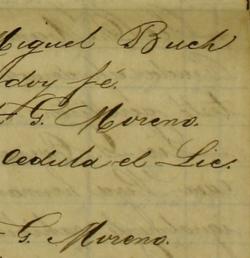 Miguel Buch
doy fé.
F G. Moreno.
cedula el Lic.
F G. Moreno.